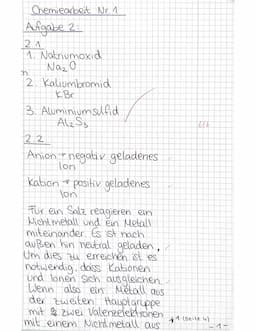 Chemiearbeit Nr.1
Aufgabe 2:
2.1.
1. Natriumoxid
Na₂O
n
2. Kaliumbromid
KBr
3. Aluminiumsulfid
Al₂S₃
6/6
2.2.
Anion → negativ geladenes
Ion
Kation → positiv geladenes
Ion
Für ein Salz reagieren ein
Nichtmetall und ein Metall
miteinander. Es ist nach
außen hin neutral geladen,
Um dies zu erreichen ist es
notwendig, dass Kationen
und Ionen sich ausgleichen.
Wenn also ein Metall aus
der zweiten Hauptgruppe
mit zwei Valenzelektronen *1 (Seite 4)
mit einem Nichtmetall aus
-1-